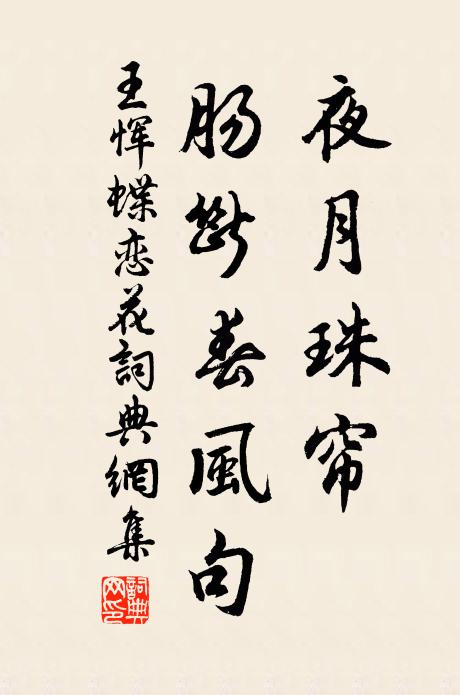 夜月珠帘
肠斷春風句
王恽蝶恋花詞典網集
詞典网印